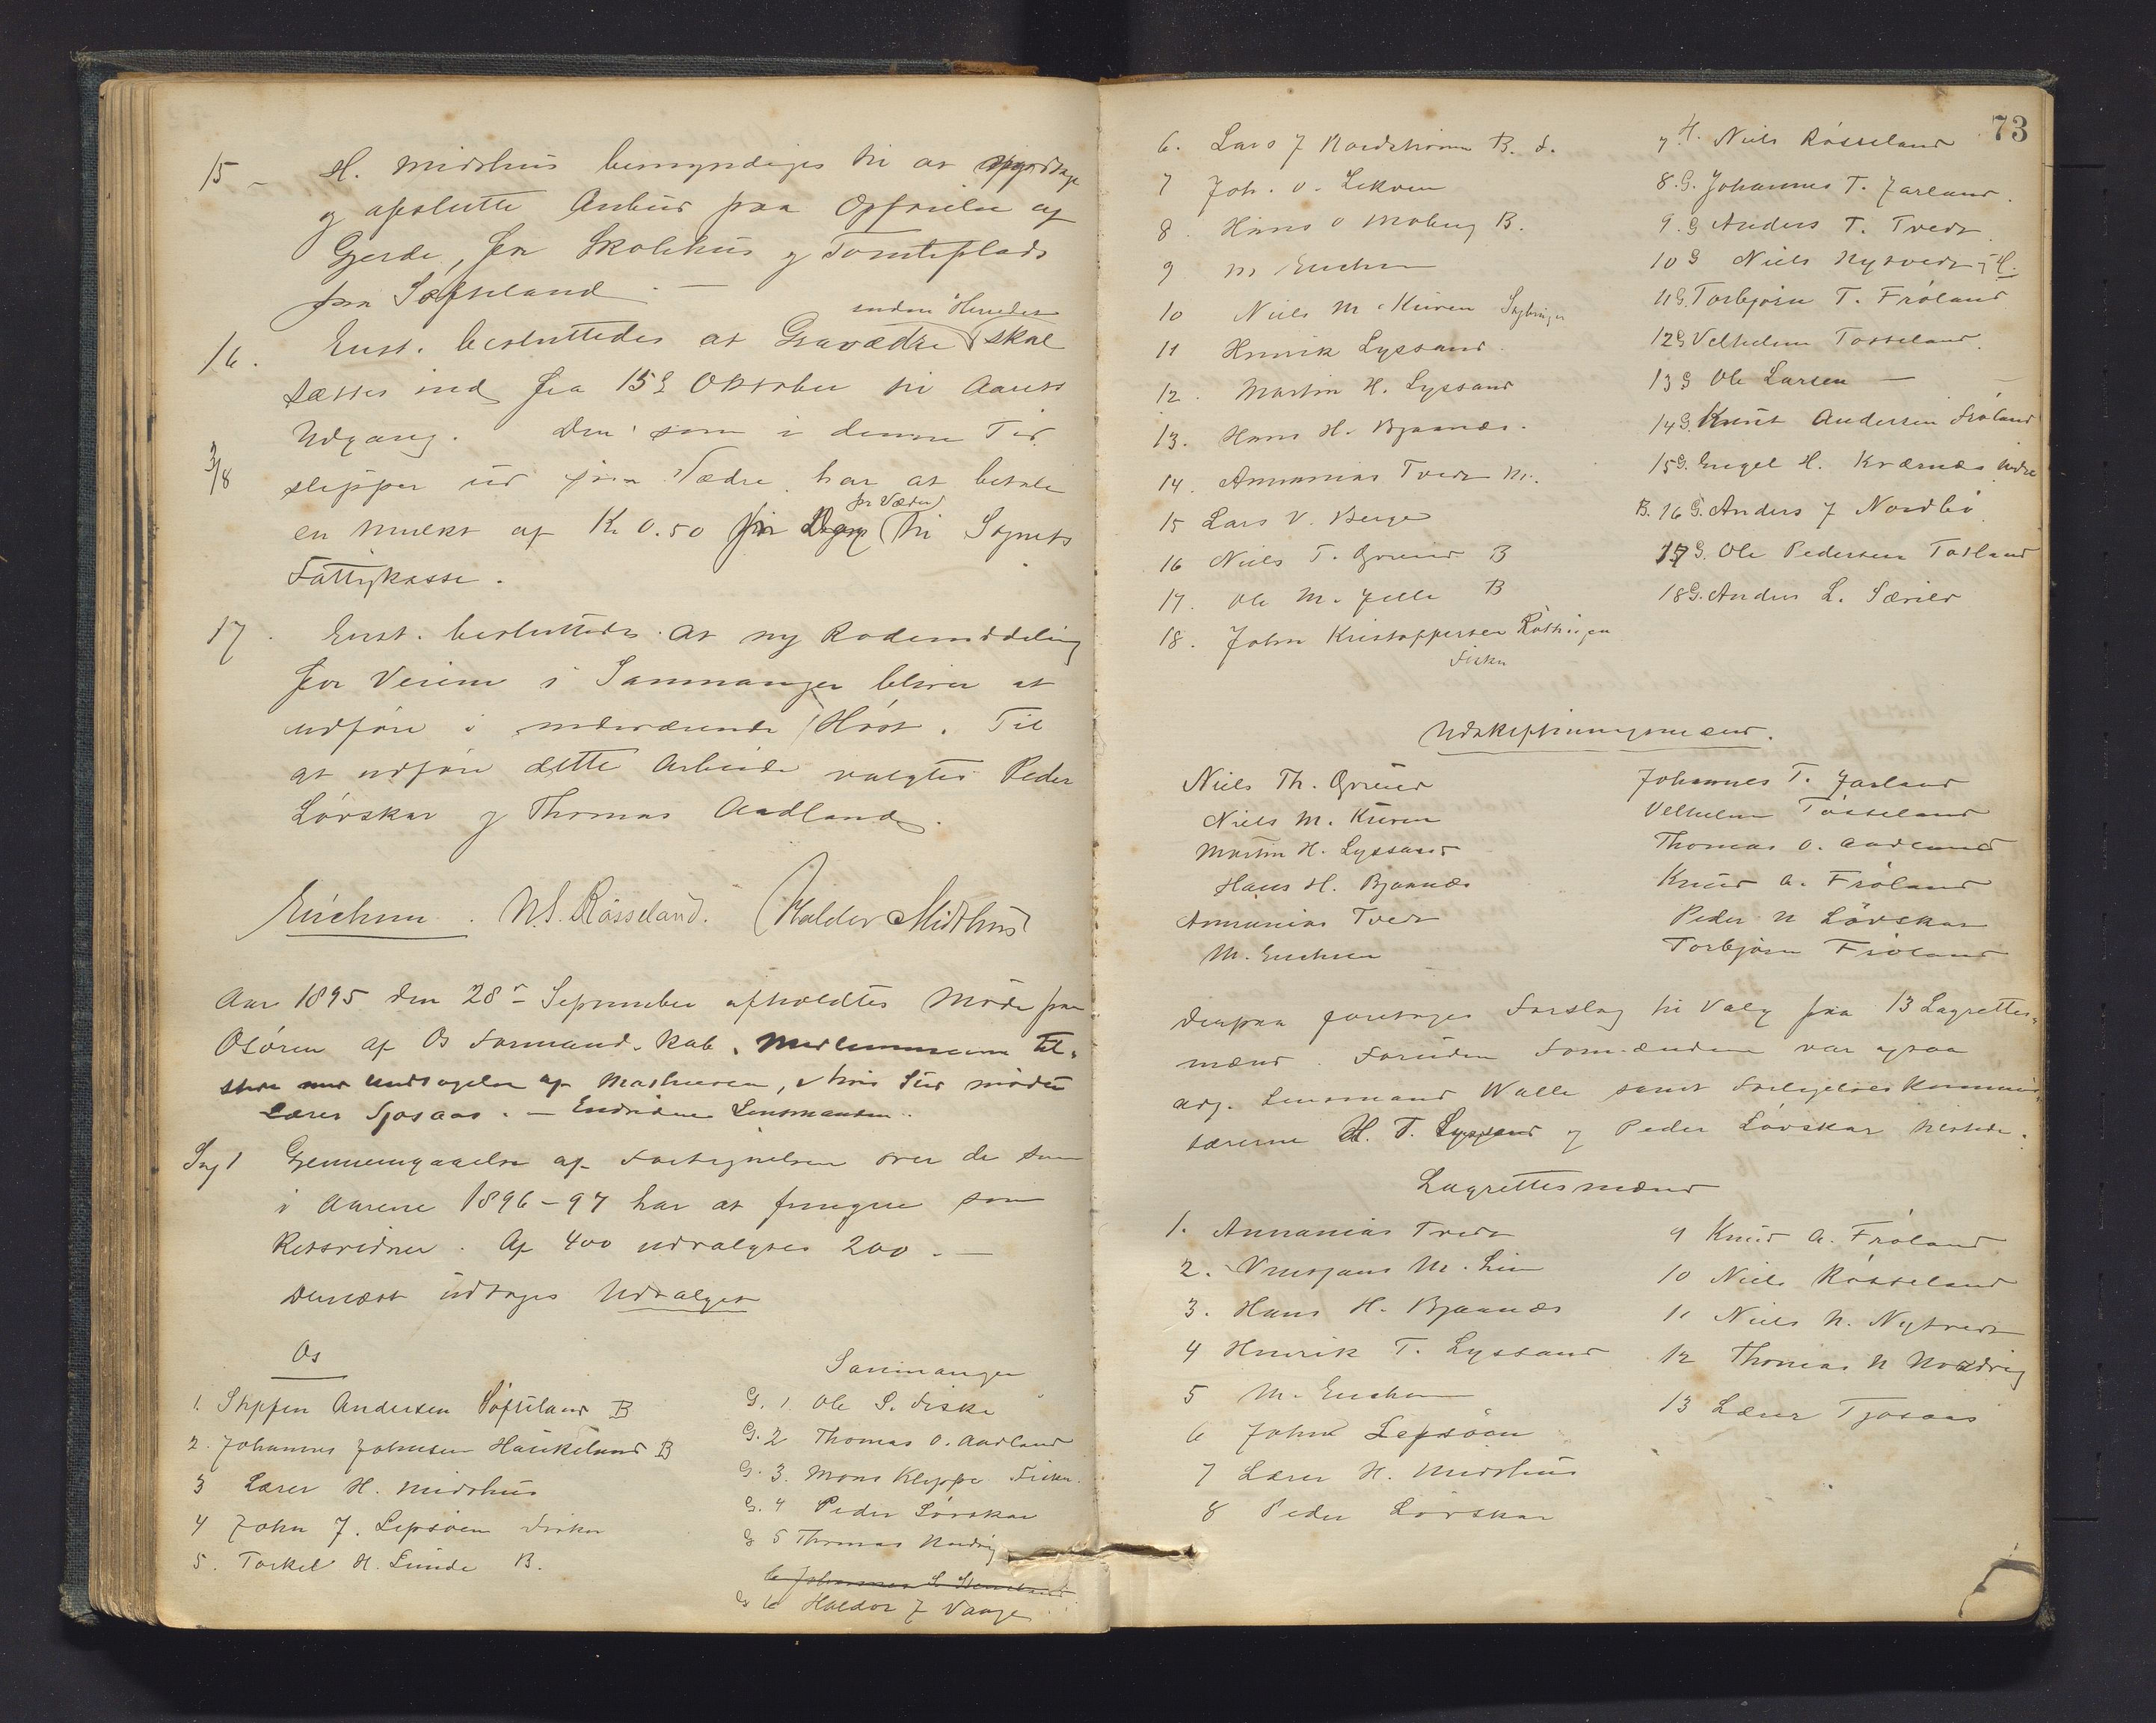 15 - H. Midthus bemyndiges til at
og afslutte Anbud paa Opførelse af
Gjerde, for Skolehus og Tomteplads
paa Søfteland. —
16. Enst. besluttedes at Gravædre inden Herredet skal
sættes ind fra 15de Oktober til Aarets
Udgang. Den som i denne Tid
3/8 slipper ud sin Vædre har at betale
en Mulkt af Kr 0.50 pr Dag pr Væder til Sognets
Fattigkasse.
17. Enst. besluttedes at ny Rodeinddeling
for Veiene i Sammanger bliver at
udføre i nærværende Høst. Til
at udføre dette Arbeide valgtes Peder
Løvskar og Thomas Aadland.
Erichsen. N. S. Røsseland. Haldor Midthus
Aar 1895 den 28de September afholdtes Møde paa
Osøren af Os Formandskab. Medlemmerne til-
stede med Undtagelse af , i hvis Sted mødte
Lærer Tjosaas. — Endvidere Lensmanden.
Sag 1 Gjennemgaaelse af Fortegnelsen over de som
i Aarene 1896-97 har at fungere som
Retsvidner. Af 400 udvalgtes 200. —
Dernæst udtoges Udvalget
Os
1. Steffen Andersen Søfteland B
2. Johannes Johnsen Haukeland B
3 Lærer H. Midthus
4 John J. Lepsøen Fisker
5. Torkel H. Lunde B.
Sammanger
G. 1. Ole S. Fiske
G. 2 Thomas O. Aadland
G. 3. Mons Kleppe Fisker.
G. 4 Peder Løvskar
G 5 Thomas Nordvig
6 Johannes S.
G 6 Haldor J Vaage
73
6. Lars J Nordstrøm B. d.
7 Joh. O. Lekven
8. Hans O Moberg B.
9 M Erichsen
10 Niels M. Kuven
11 Henrik Lyssand.
12. Martin H. Lyssand
13. Hans H. Bjaanæs.
14. Annanias Tvedt M.
15 Lars V. Berge
16 Niels T. Grønd B
17. Ole M. Jelle B
18. John Kristoffersen Røttingen
Fisker
7 H. Niels Røsseland
8. G. Johannes T. Jarland.
9. G Anders T. Tvedt
10 G Niels Nytvedt H.
11 G. Torbjørn T. Frøland
12 G Velhelm Tøsseland
13 G Ole Larsen —
14 G. Knut Andersen Frøland
15 G. Engel H. Kvernæs Indre
B. 16 G. Anders J Nordbø
17 G. Ole Pedersen Totland
18 G. Anders L. Sævild
Udskiftningsmænd.
Niels Th. Grønd
Niels M. Kuven
Martin H. Lyssand
Hans H. Bjaanæs
Annanias Tvedt
M. Erichsen
Johannes T. Jarland
Velhelm Tøsseland
Thomas O. Aadland
Knud A. Frøland
Peder N Løvskar
Torbjørn Frøland
Derpaa foretoges Forslag til Valg paa 13 Lagrettes-
mænd. Foruden Formænden var ogsaa
adj. Lensmand Walle samt Forligelseskommis-
særerne H. T. Lyssand og Peder Løvskar tilstede.
Lagrettesmænd
1. Annanias Tvedt
2. M. Lien
3. Hans H. Bjaanæs
4 Henrik T. Lyssand
5 M. Erichsen
6 John Lepsøen
7 Lærer H. Midthus
8 Peder Løvskar
9 Knud A. Frøland
10 Niels Røsseland
11 Niels N. Nytvedt
12 Thomas N Nordvig
13 Lærer Tjosaas